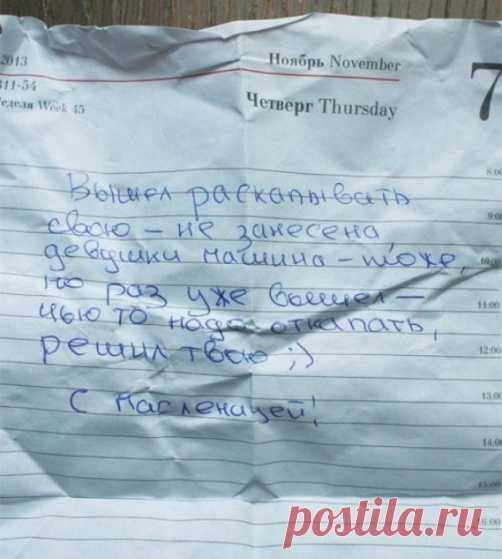 2013
Ноябрь November
311-54
Неделя Week 45
Четверг Thursday
7
8:00
Вышел раскапывать
9:00
свою – не занесена,
девушки машина – тоже,
10:00
но раз уже вышел –
11:00
чью то надо откапать,
12:00
решил твою ;)
13:00
С Масленицей!
14:00
15:00
16:00
postila.ru